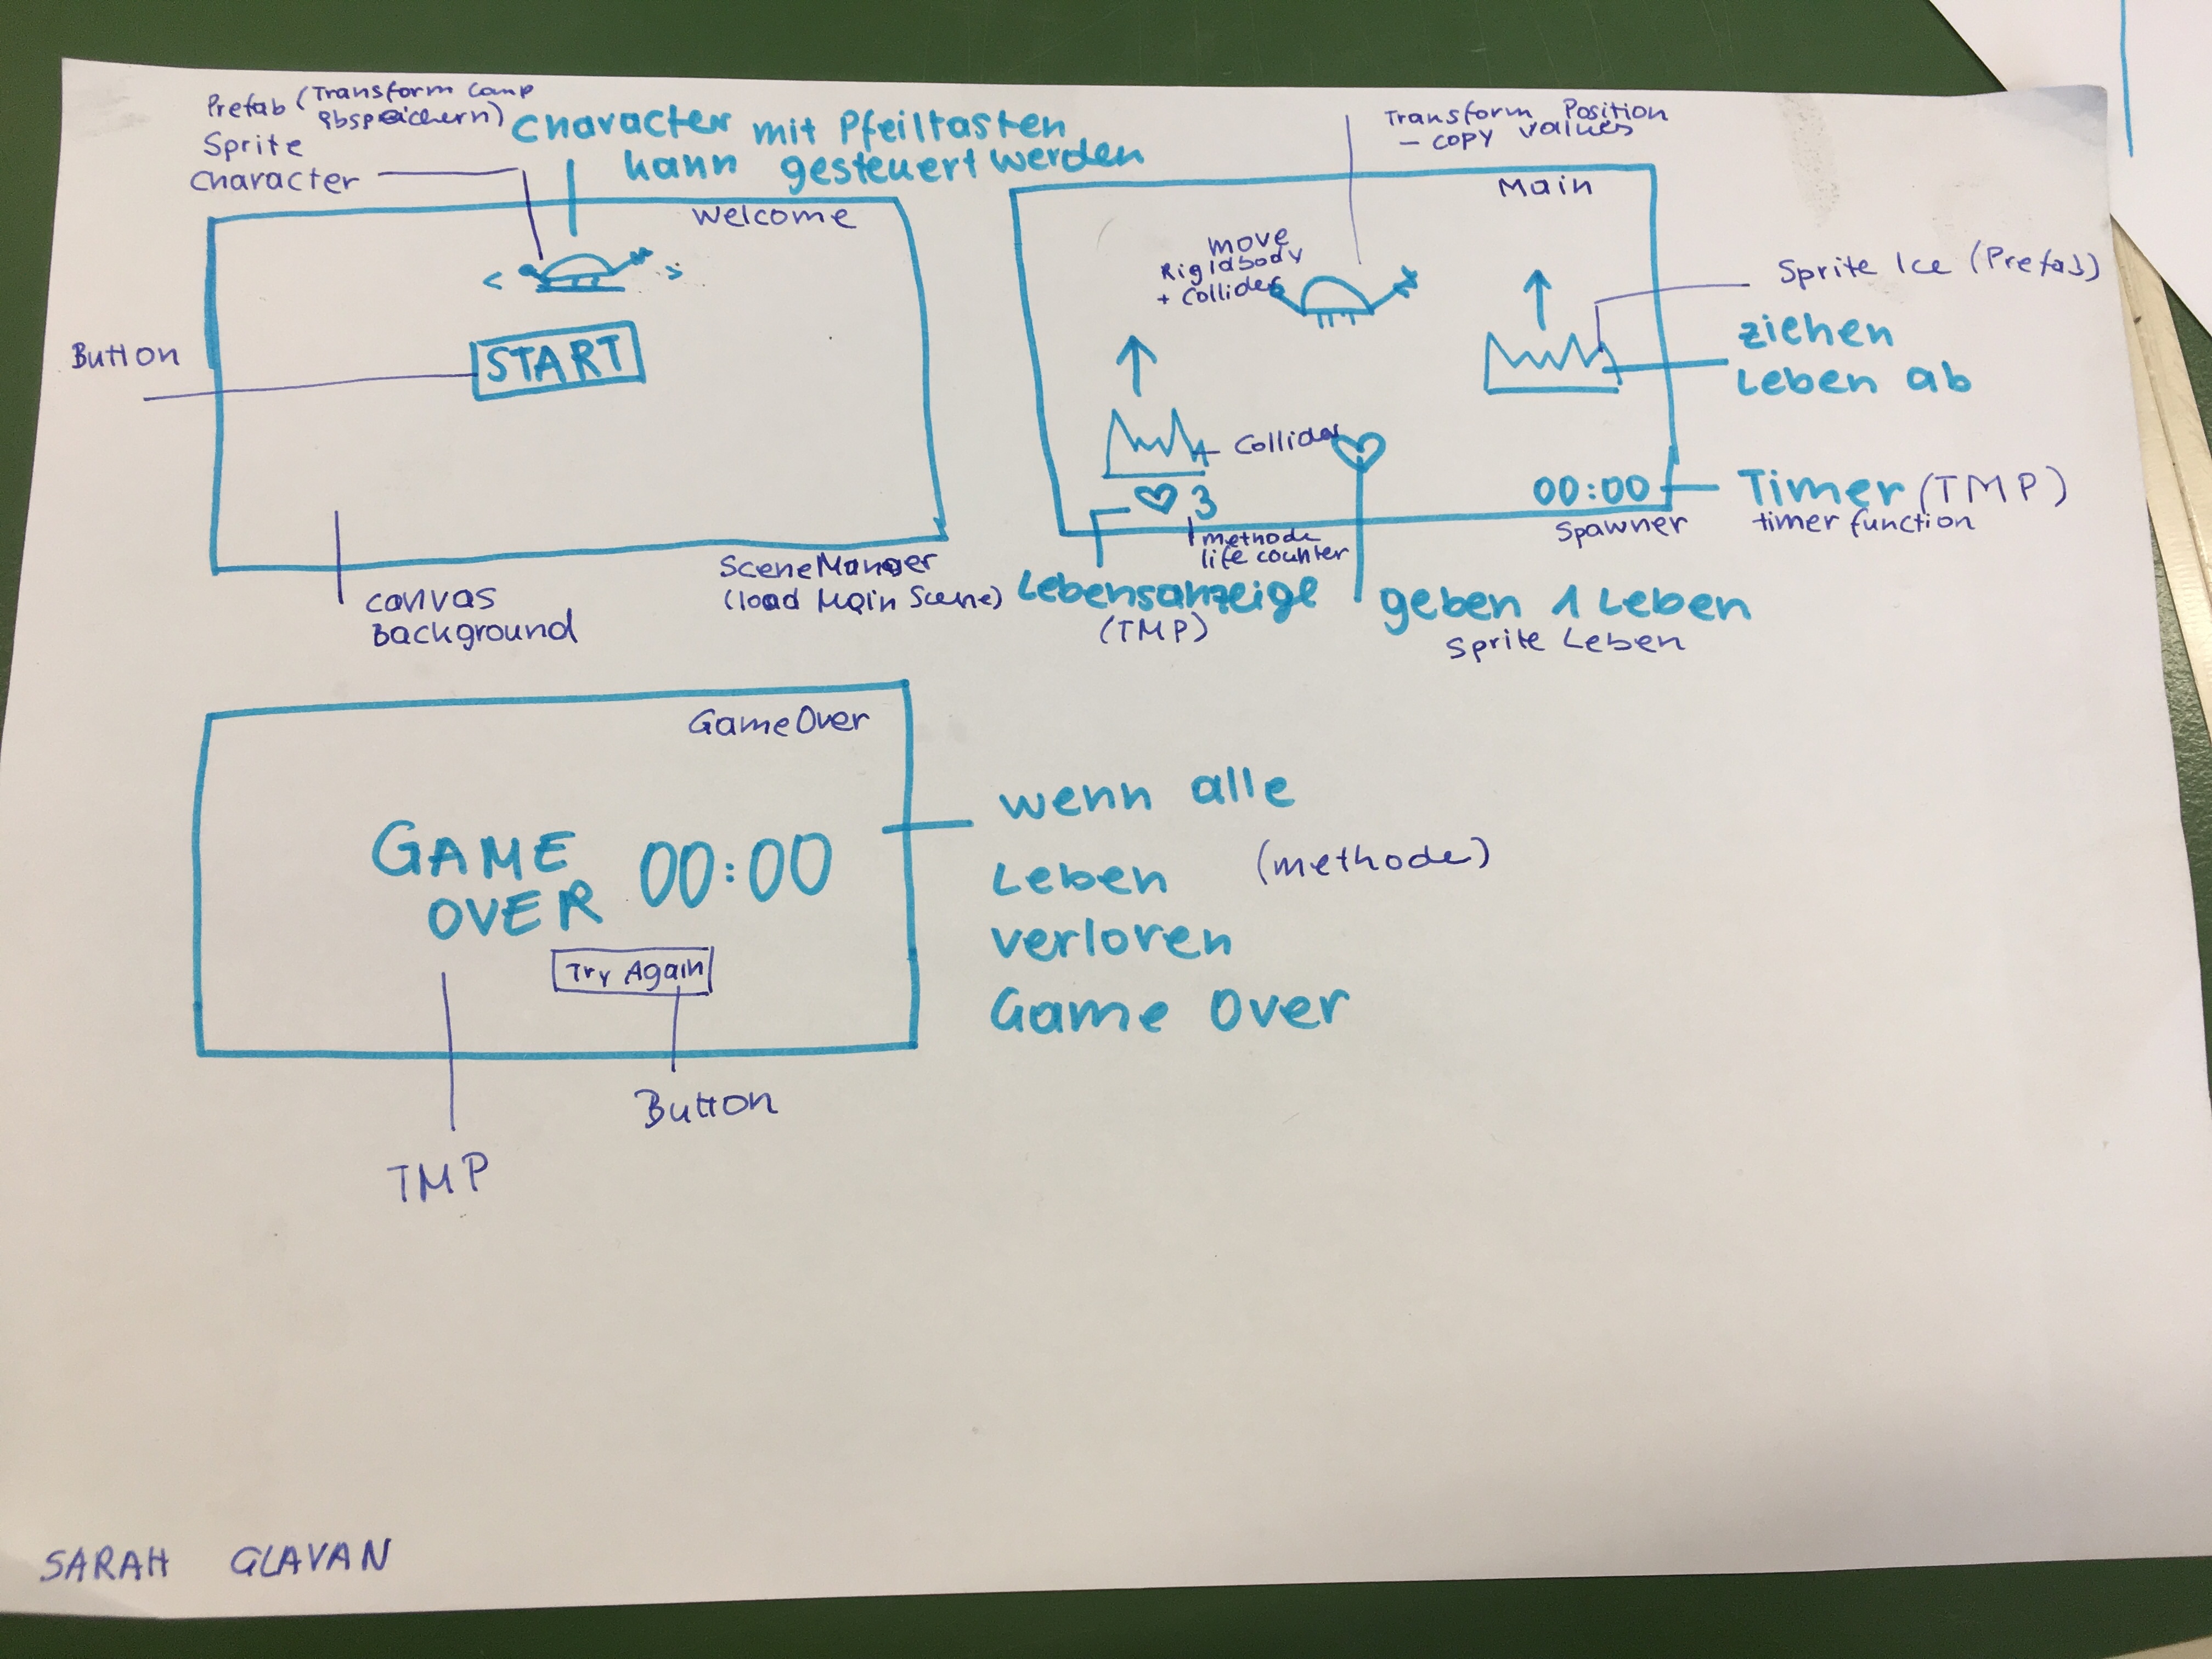 Prefab (Transform Comp
abspeichern)
Sprite
Character
Character mit Pfeiltasten
kann gesteuert werden
Welcome
< >
START
Button
canvas
background
SceneManger
(load Main Scene)
Transform Position
- copy values
Main
move
Rigidbody
+ Collider
Sprite Ice (Prefab)
ziehen
Leben ab
Collider
3
00:00
Timer (TMP)
timer function
Spawner
methode
life counter
Lebensanzeige
(TMP)
geben 1 Leben
Sprite Leben
GameOver
GAME
OVER
00:00
Try Again
TMP
Button
wenn alle
Leben (methode)
verloren
Game Over
SARAH GLAVAN